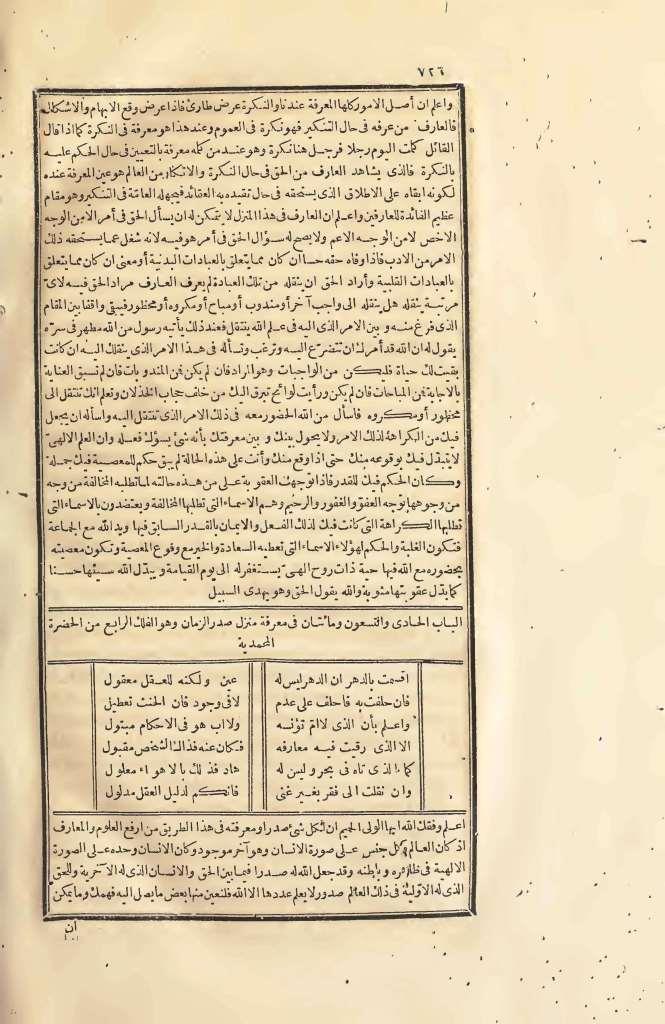 ٧٢٦
واعلم ان أصل الامور كلها المعرفة عندنا والنكرة عرض طارئ فاذا عرض وقع الابهام والاشكال
فالعارف من عرفه فى حال التنكير فهو نكرة فى العموم وعند هذا هو معرفة فى النكرة كما اذا قال
القائل كلمت اليوم رجلا فرجل هنا نكرة وهو عند من كلمه معرفة بالتعيين فى حال الحكم عليه
بالنكرة فالذى يشاهد العارف من الحق فى حال النكرة والانكار من العالم هو عين المعرفة عنده
لكونه ابقاه على الاطلاق الذى يستحقه فى حال تقييده به العقائد فيجهله العامة فى التنكير وهو مقام
عظيم الفائدة للعارفين واعلم ان العارف فى هذا المنزل لا يتمكن له ان يسأل الحق فى أمر الا من الوجه
الاخص لا من الوجه الاعم ولا يصح له سؤال الحق فى أمر هو فيه لانه شغل عما يستحقه ذلك
الامر من الادب فاذا وفاه حقه حسا ان كان مما يتعلق بالعبادات البدنية أو معنى ان كان مما يتعلق
بالعبادات القلبية وأراد الحق ان ينقله من تلك العبادة لم يعرف العارف مراد الحق فيه لاى
مرتبة ينقله هل ينقله الى واجب آخر أو مندوب أو مباح أو مكروه أو محظور فيبقى واقفا بين المقام
الذى فرغ منه وبين الامر الذى اليه فى علم الله ينتقل فعند ذلك يأتيه رسول من الله مطهر فى سره
يقول له ان الله قد أمرك ان تتضرع اليه وترغب وتسأله فى هذا الامر الذى ينقلك اليه ان كانت
بقيت لك حياة فليكن من الواجبات وهو المراد فان لم يكن فمن المندوبات فان لم تسبق العناية
بالاجابة فمن المباحات فان لم يكن ورأيت لوائح تبرق اليك من خلف حجاب الخذلان وتعلم انك تنتقل الى
محظور أو مكروه فاسأل من الله الحضور معه فى ذلك الامر الذى تنتقل اليه واسأله ان يجعل
فيك من الكراهة لذلك الامر ولا يحول بينك وبين معرفتك بأنه شئ يسؤك فعله وان العلم الالهى
لا يتبدل فيك بوقوعه منك حتى اذا وقع منك وأنت على هذه الحالة لم يبق حكم للمعصية فيك جملة
وكان الحكم فيك للقدر فاذا توجهت العقوبة على من هذه حالته لما تطلبه المخالفة من وجه
من وجوهها توجه العفو والغفور والرحيم وهم الاسماء التى تطلبها المخالفة ويعتضدون بالاسماء التى
تطلبها الكراهة التى كانت فيك لذلك الفعل والايمان بالقدر السابق فيها ويد الله مع الجماعة
فتكون الغلبة والحكم لهؤلاء الاسماء التى تعطيه السعادة والخير مع وقوع المعصية وتكون معصيته
بحضوره مع الله فيها حية ذات روح الهى يستغفر له الى يوم القيامة ويبدل الله سيئها حسنا
كما بدل عقوبتها مثوبة والله يقول الحق وهو يهدى السبيل
الباب الحادى والتسعون ومائتان فى معرفة منزل صدر الزمان وهو الفلك الرابع من الحضرة
المحمدية
اقسمت بالدهر ان الدهر ليس له عين ولكنه للعقل معقول
فان حلفت به فاحلف على عدم لا فى وجود فان الحنث تعطيل
واعلم بأن الذى لا ام تؤنسه ولا اب هو فى الاحكام مبتول
الا الذى رقيت فيه معارفه فكان عنه فذاك الشخص مقبول
كما الذى تاه فى بحر وليس له هاد فذلك بالاهواء معلول
وان نقلت الى فقر بغير غنى فانكم لدليل العقل مدلول
اعلم وفقك الله ايها الولى الحميم ان لكل شئ صدرا ومعرفته فى هذا الطريق من ارفع العلوم والمعارف
اذ كان العالم وكل جنس على صورة الانسان وهو آخر موجود وكان الانسان وحده على الصورة
الالهية فى ظاهره وباطنه وقد جعل الله له صدرا فما بين الحق والانسان الذى له الآخرية وللحق
الذى له الاولية فى ذلك العالم صدور لا يعلم عددها الا الله فلنعين منها بعض ما يصل اليه فهمك وما يمكن
ان